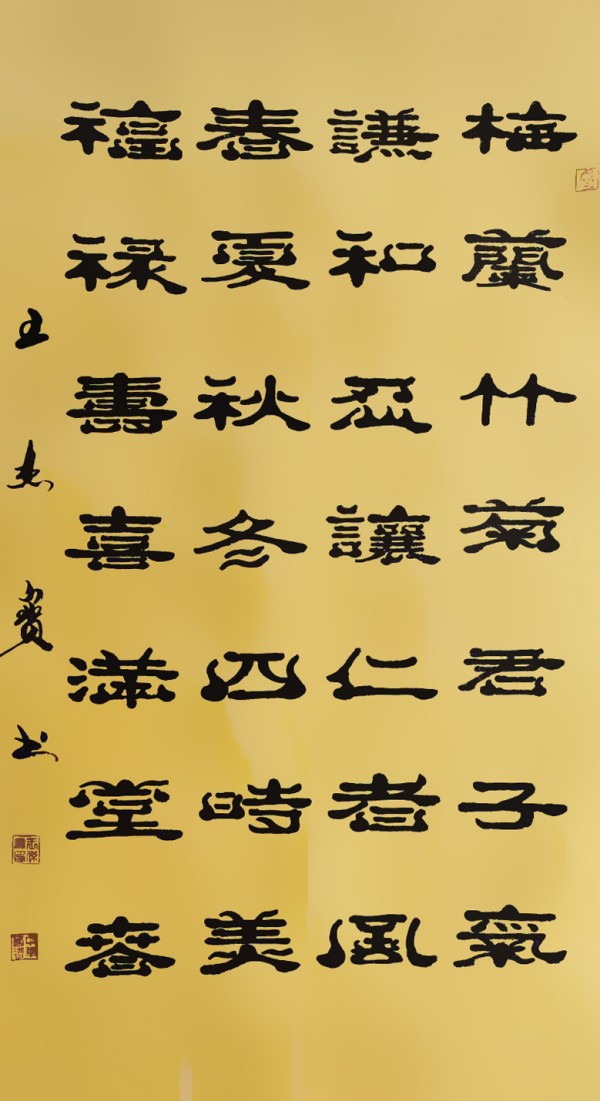 梅蘭竹菊君子氣
謙和忍讓仁者風
春夏秋冬四時美
福祿壽喜滿堂春
王杰寶书